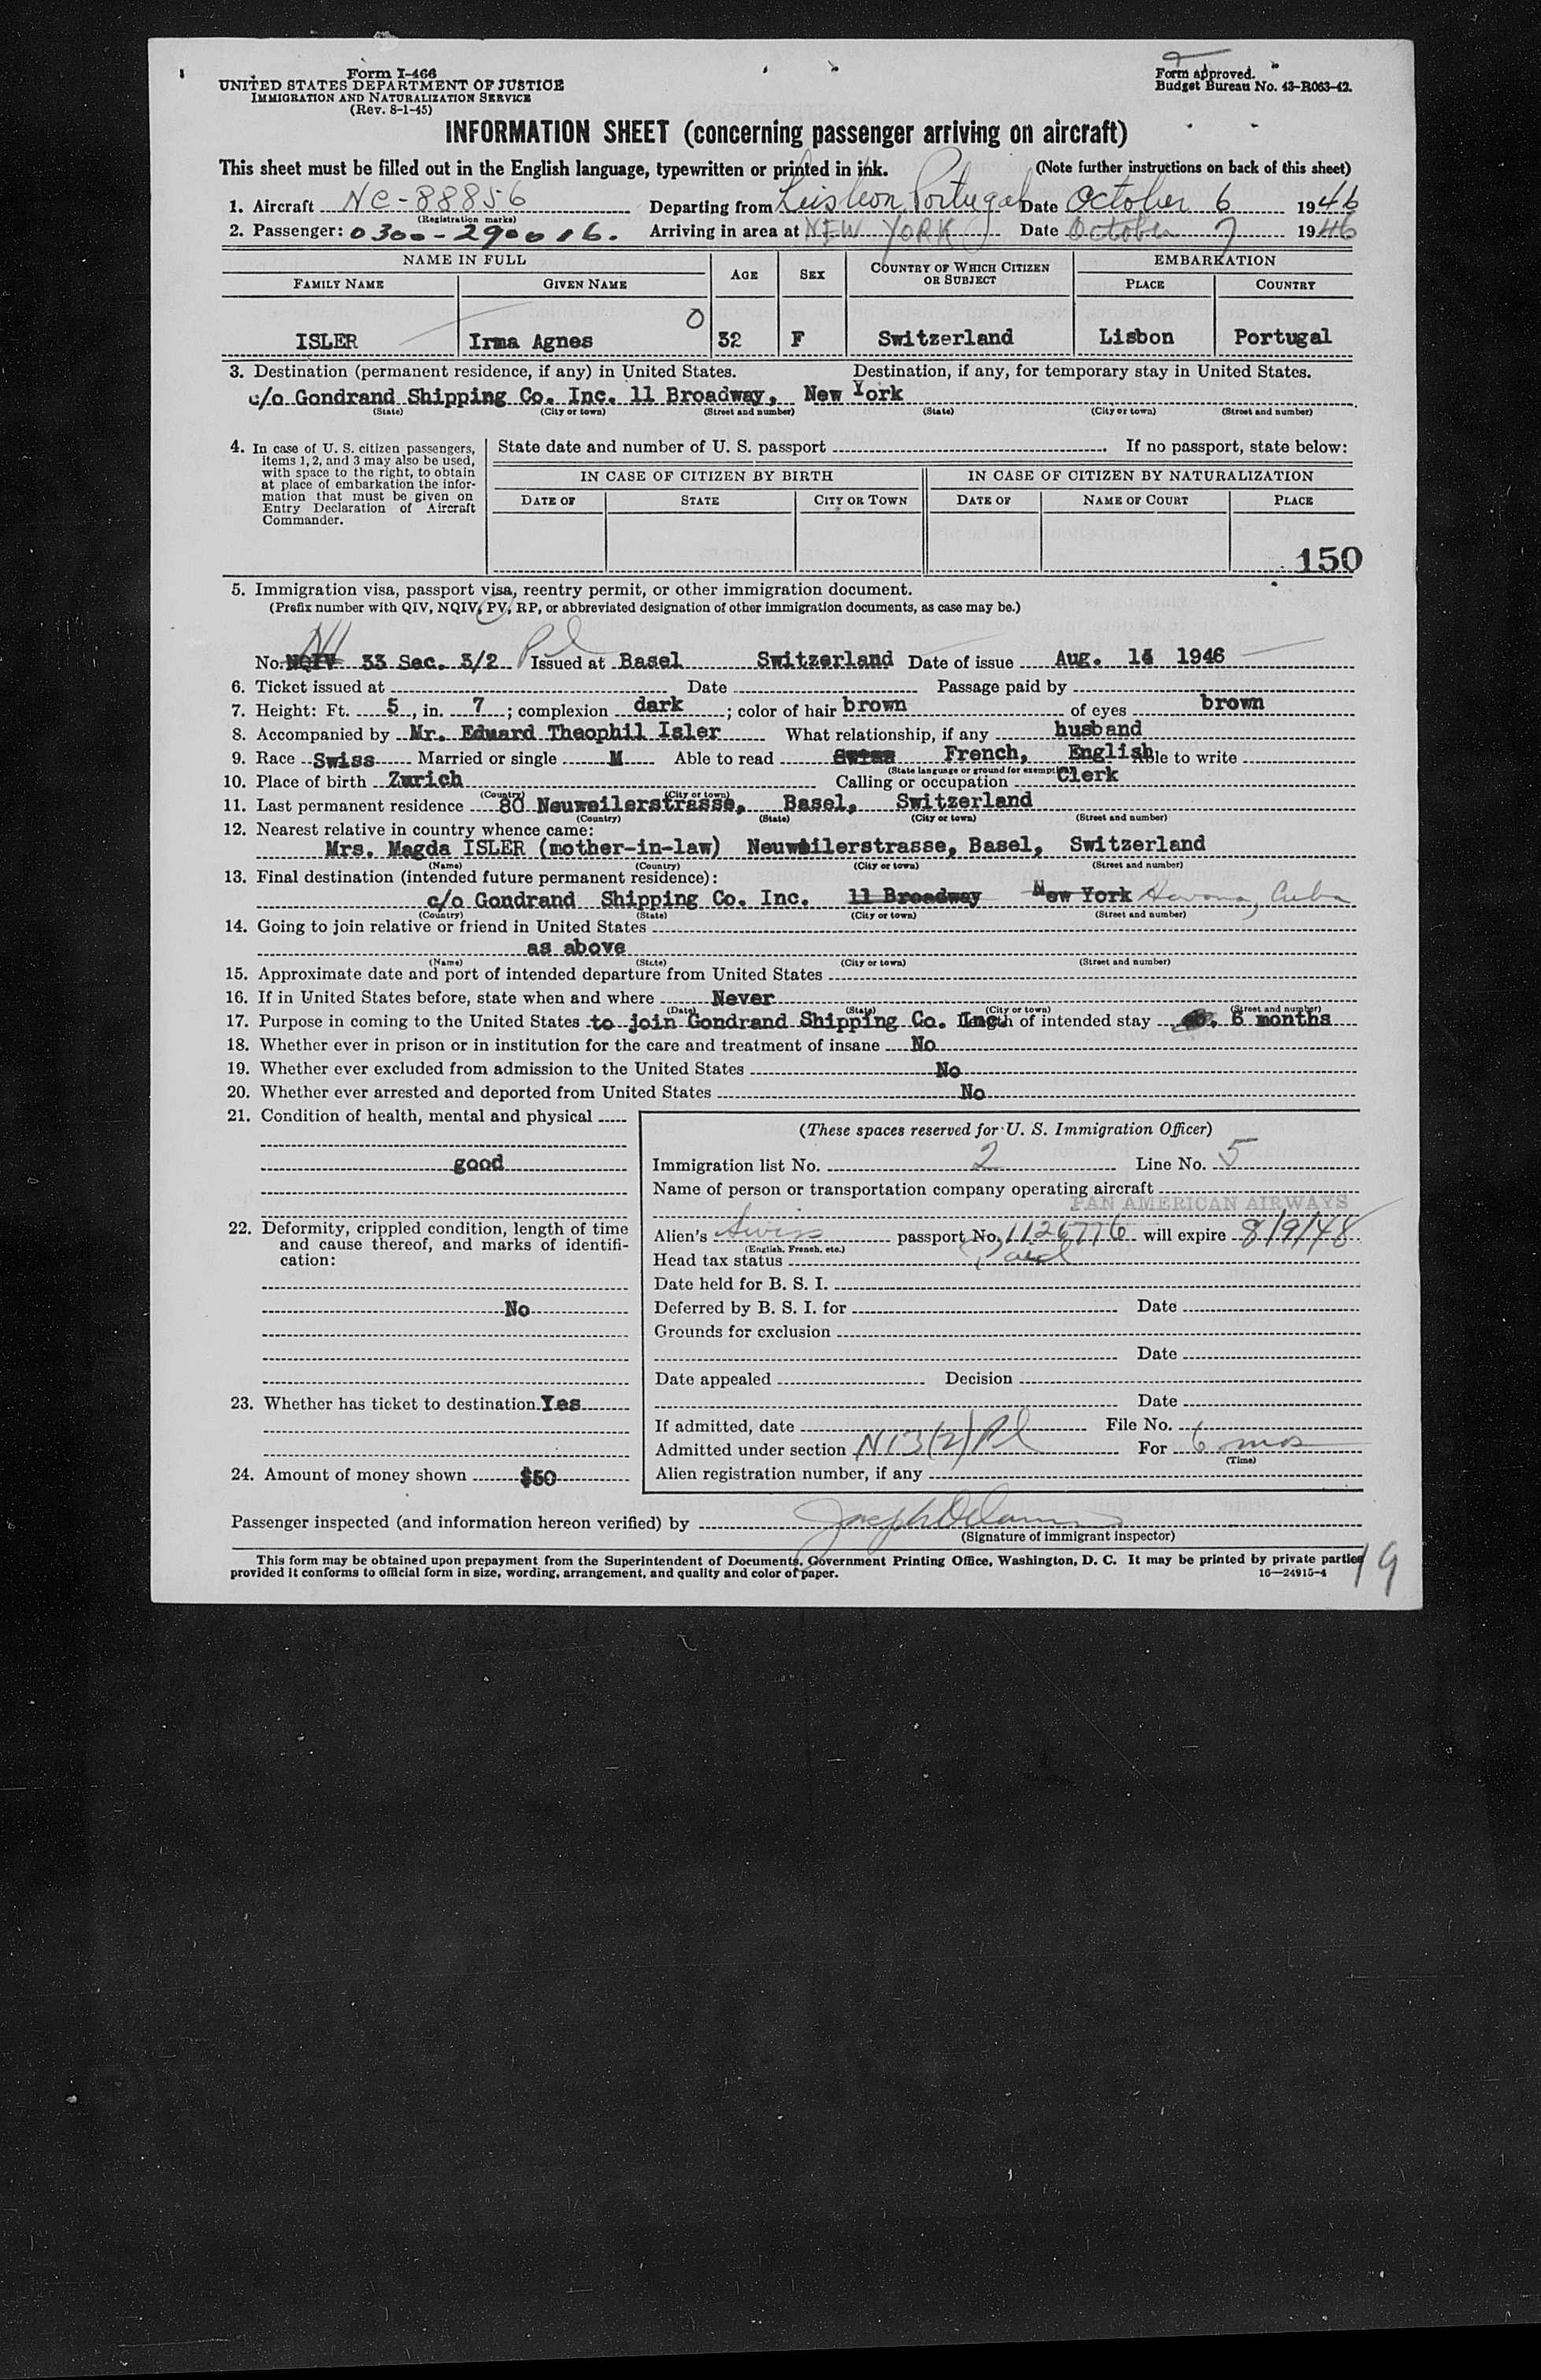 Form I-466
UNITED STATES DEPARTMENT OF JUSTICE
IMMIGRATION AND NATURALIZATION SERVICE
(Rev. 8-1-45)
Form approved.
Budget Bureau No. 43-R063-42.
INFORMATION SHEET (concerning passenger arriving on aircraft)
This sheet must be filled out in the English language, typewritten or printed in ink. (Note further instructions on back of this sheet)
1. Aircraft NC-88856 Departing from Leisbon, Portugal Date October 6 1946
(Registration marks)
2. Passenger: 0300-290016. Arriving in area at NEW YORK Date October 7 1946
NAME IN FULL AGE SEX COUNTRY OF WHICH CITIZEN OR SUBJECT EMBARKATION
FAMILY NAME GIVEN NAME PLACE COUNTRY
0
ISLER Irma Agnes 32 F Switzerland Lisbon Portugal
3. Destination (permanent residence, if any) in United States. Destination, if any, for temporary stay in United States.
c/o Gondrand Shipping Co. Inc. 11 Broadway, New York
(State) (City or town) (Street and number) (State) (City or town) (Street and number)
4. In case of U. S. citizen passengers, items 1, 2, and 3 may also be used, with space to the right, to obtain at place of embarkation the information that must be given on Entry Declaration of Aircraft Commander.
State date and number of U. S. passport If no passport, state below:
IN CASE OF CITIZEN BY BIRTH IN CASE OF CITIZEN BY NATURALIZATION
DATE OF STATE CITY OR TOWN DATE OF NAME OF COURT PLACE
150
5. Immigration visa, passport visa, reentry permit, or other immigration document.
(Prefix number with QIV, NQIV, PV, RP, or abbreviated designation of other immigration documents, as case may be.)
No. NQIV 33 Sec. 3/2 Pl Issued at Basel Switzerland Date of issue Aug. 14 1946
6. Ticket issued at Date Passage paid by
7. Height: Ft. 5, in. 7; complexion dark; color of hair brown of eyes brown
8. Accompanied by Mr. Eduard Theophil Isler What relationship, if any husband
9. Race Swiss Married or single M Able to read Swiss French, English Able to write
(State language or ground for exemption)
10. Place of birth Zurich Calling or occupation Clerk
(Country) (City or town)
11. Last permanent residence 80 Neuweilerstrasse, Basel, Switzerland
(Country) (State) (City or town) (Street and number)
12. Nearest relative in country whence came:
Mrs. Magda ISLER (mother-in-law) Neuweilerstrasse, Basel, Switzerland
(Name) (Country) (City or town) (Street and number)
13. Final destination (intended future permanent residence):
c/o Gondrand Shipping Co. Inc. 11 Broadway New York Havana, Cuba
(Country) (State) (City or town) (Street and number)
14. Going to join relative or friend in United States
as above
(Name) (State) (City or town) (Street and number)
15. Approximate date and port of intended departure from United States
16. If in United States before, state when and where Never
(Date) (State) (City or town) (Street and number)
17. Purpose in coming to the United States to join Gondrand Shipping Co. Inc. Length of intended stay 6 months
18. Whether ever in prison or in institution for the care and treatment of insane No
19. Whether ever excluded from admission to the United States No
20. Whether ever arrested and deported from United States No
21. Condition of health, mental and physical
good
22. Deformity, crippled condition, length of time and cause thereof, and marks of identification:
No
23. Whether has ticket to destination Yes
24. Amount of money shown $50
(These spaces reserved for U. S. Immigration Officer)
Immigration list No. 2 Line No. 5
Name of person or transportation company operating aircraft
PAN AMERICAN AIRWAYS
Alien's Swiss passport No. 1126776 will expire 8/9/48
(English, French, etc.)
Head tax status Paid
Date held for B. S. I.
Deferred by B. S. I. for Date
Grounds for exclusion
Date
Date appealed Decision
Date
If admitted, date File No.
Admitted under section N13(2)Pl For 6 mos
(Time)
Alien registration number, if any
Passenger inspected (and information hereon verified) by
(Signature of immigrant inspector)
This form may be obtained upon prepayment from the Superintendent of Documents, Government Printing Office, Washington, D. C. It may be printed by private parties
provided it conforms to official form in size, wording, arrangement, and quality and color of paper. 16—24915-4
19